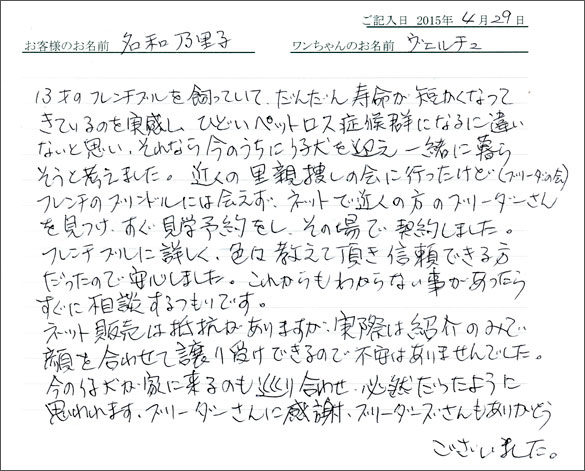 ご記入日 2015年 4月29日
お客様のお名前 名和乃里子 ワンちゃんのお名前 ヴェルチェ
13才のフレンチブルを飼っていて、だんだん寿命が短かくなって
きているのを実感し、ひどいペットロス症候群になるに違い
ないと思い、それなら今のうちに仔犬を迎え一緒に暮ら
そうと考えました。近くの里親捜しの会に行ったけど(ブリーダーの会)
フレンチのブリンドルには会えず、ネットで近くの方のブリーダーさん
を見つけ、すぐ見学予約をし、その場で契約しました。
フレンチブルに詳しく、色々教えて頂き信頼できる方
だったので安心しました。これからもわからない事があったら
すぐに相談するつもりです。
ネット販売は抵抗がありますが、実際は紹介のみで
顔を合わせて譲り受けできるので不安はありませんでした。
今の仔犬が家に来るのも巡り合わせ、必然だったように
思われます、ブリーダーさんに感謝、ブリーダーズさんもありがとう
ございました。